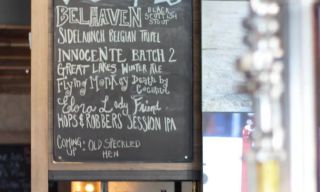 BELHAVEN BLACK SCOTTISH STOUT
SIDELAUNCH BELGIAN TRIPEL
INNOCENTE BATCH 2
GREAT LAKES WINTER ALE
Flying Monkey Death by Coconut
Elora Lady Friend
HOPS & ROBBERS SESSION IPA
COMING UP: OLD SPECKLED HEN